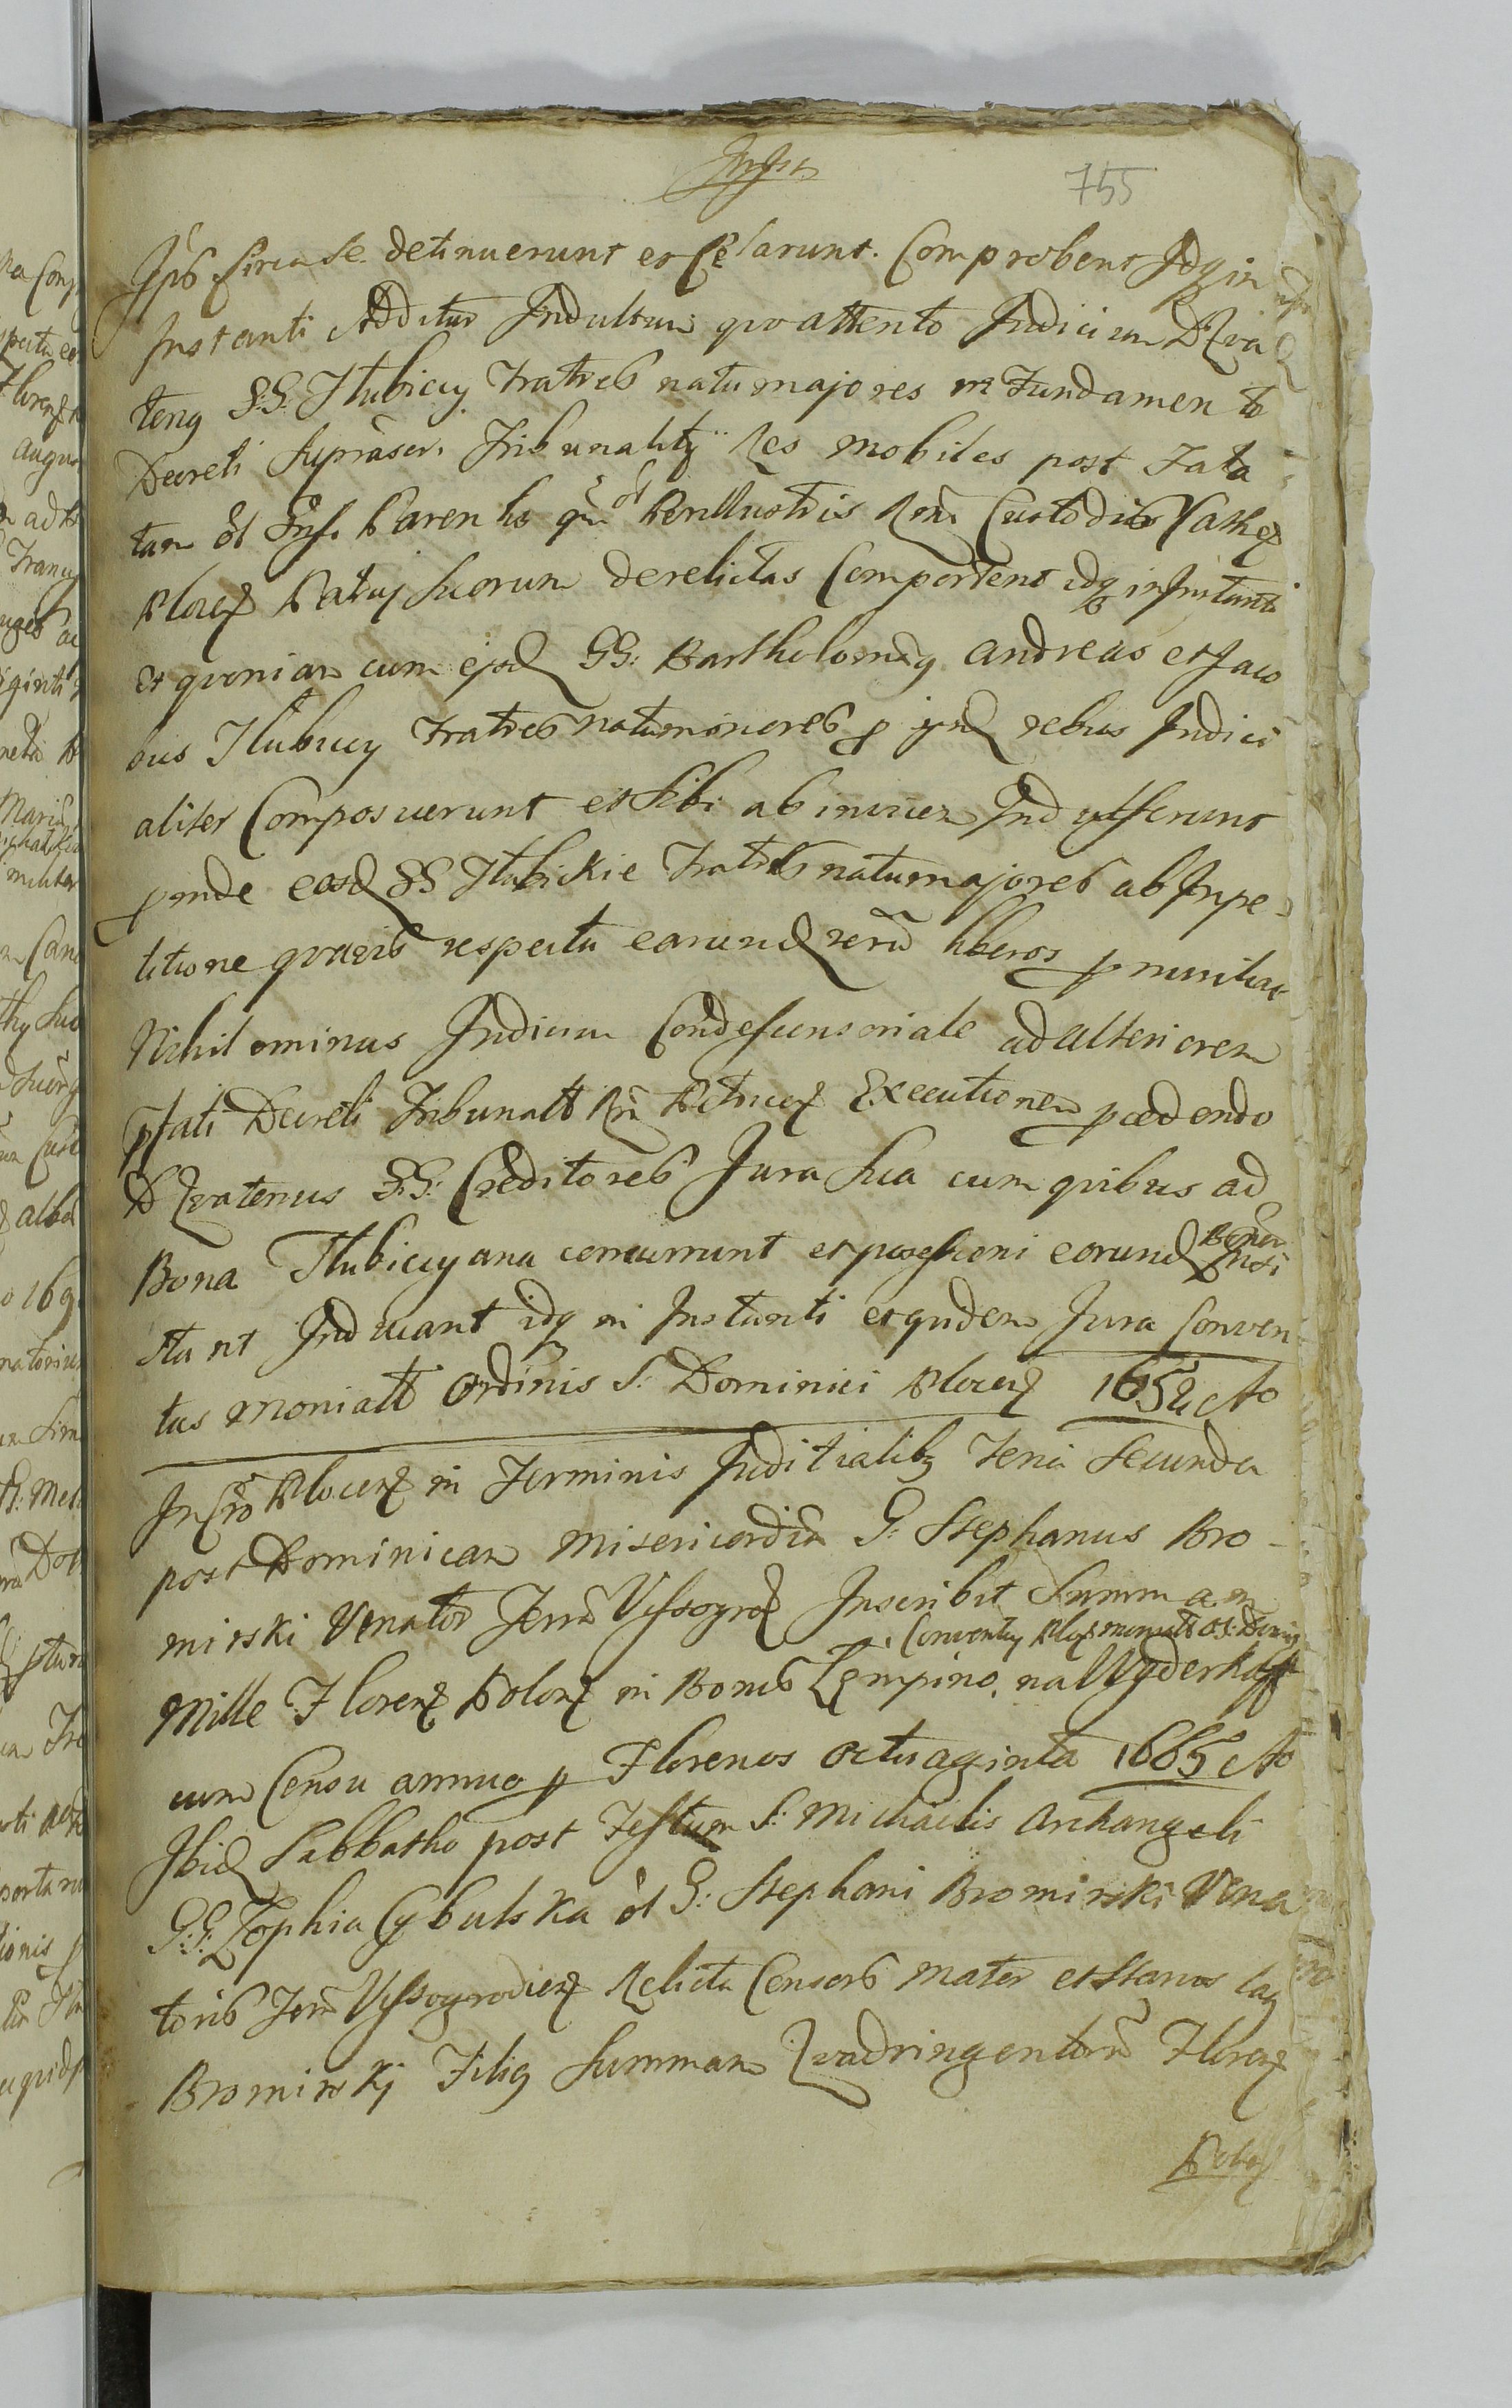 755
Ipõ circa se detinuerunt et Celarunt. Comprobent Idq in
Instanti Additur Indultum quo attento Judicium D Qua
tenq G:G: Hubiccy Fratres natu majores in Fundamento
Decreti suprascr. Tribunality Res mobiles post Fata
tam ol Gnsi Parentis qm ol Perillustris Rndi Custodis Cathez
Plocz Patruj suorum derelictas Comportent idq in Instanti
Et quoniam cum ejsd GG: Bartholomeg Andreas et Jaco
bus Hubiccy Fratres natu minores p ijsd rebus Judici
aliter Composuerunt et sibi ab invicem Indulserunt
proinde eosd GG Hubickie Fratres natu majores ab Impe-
titione quavis respectu earund rerũ liberos pnuntiat
Nihilominus Judicium Condescensoriale ad Ulteriorem
pfati Decreti Tribunalt Rñ Petricoz Executionem pcedendo
D Quatenus G:G: Creditores Jura sua cum quibus ad
Bona Hubiccyana concurrunt et possessioni eorund Bonor Insi
stunt Inducant idq in Instanti et quidem Jura Conven
tus Monialt Ordinis S: Dominici Plocen 1652 Ao
In Cro Plocen in Terminis Juditialibz Feria Secunda
post Dominicam Misericordia G: Stephanus Bro-
mirski Venator Terrũ Vissogrod Inscribit Summam
Mille Florenz Polonz in Bonis Lempino na Wyderkaff
p. Conventy Ploc monialt O S: Dominici
cum Censu annuo p Florenos Octuaginta 1665 Ao
Ibid Sabbatho post Festum S: Michaelis Archangeli
G:G: Zophia Cybulska ol G: Stephani Bromirski Vena
toris Terũ Vissogrodienz Relicta Consors mater et Stanis lag
Bromirskj Filig Summam Quadringentorũ Florenz
Polon